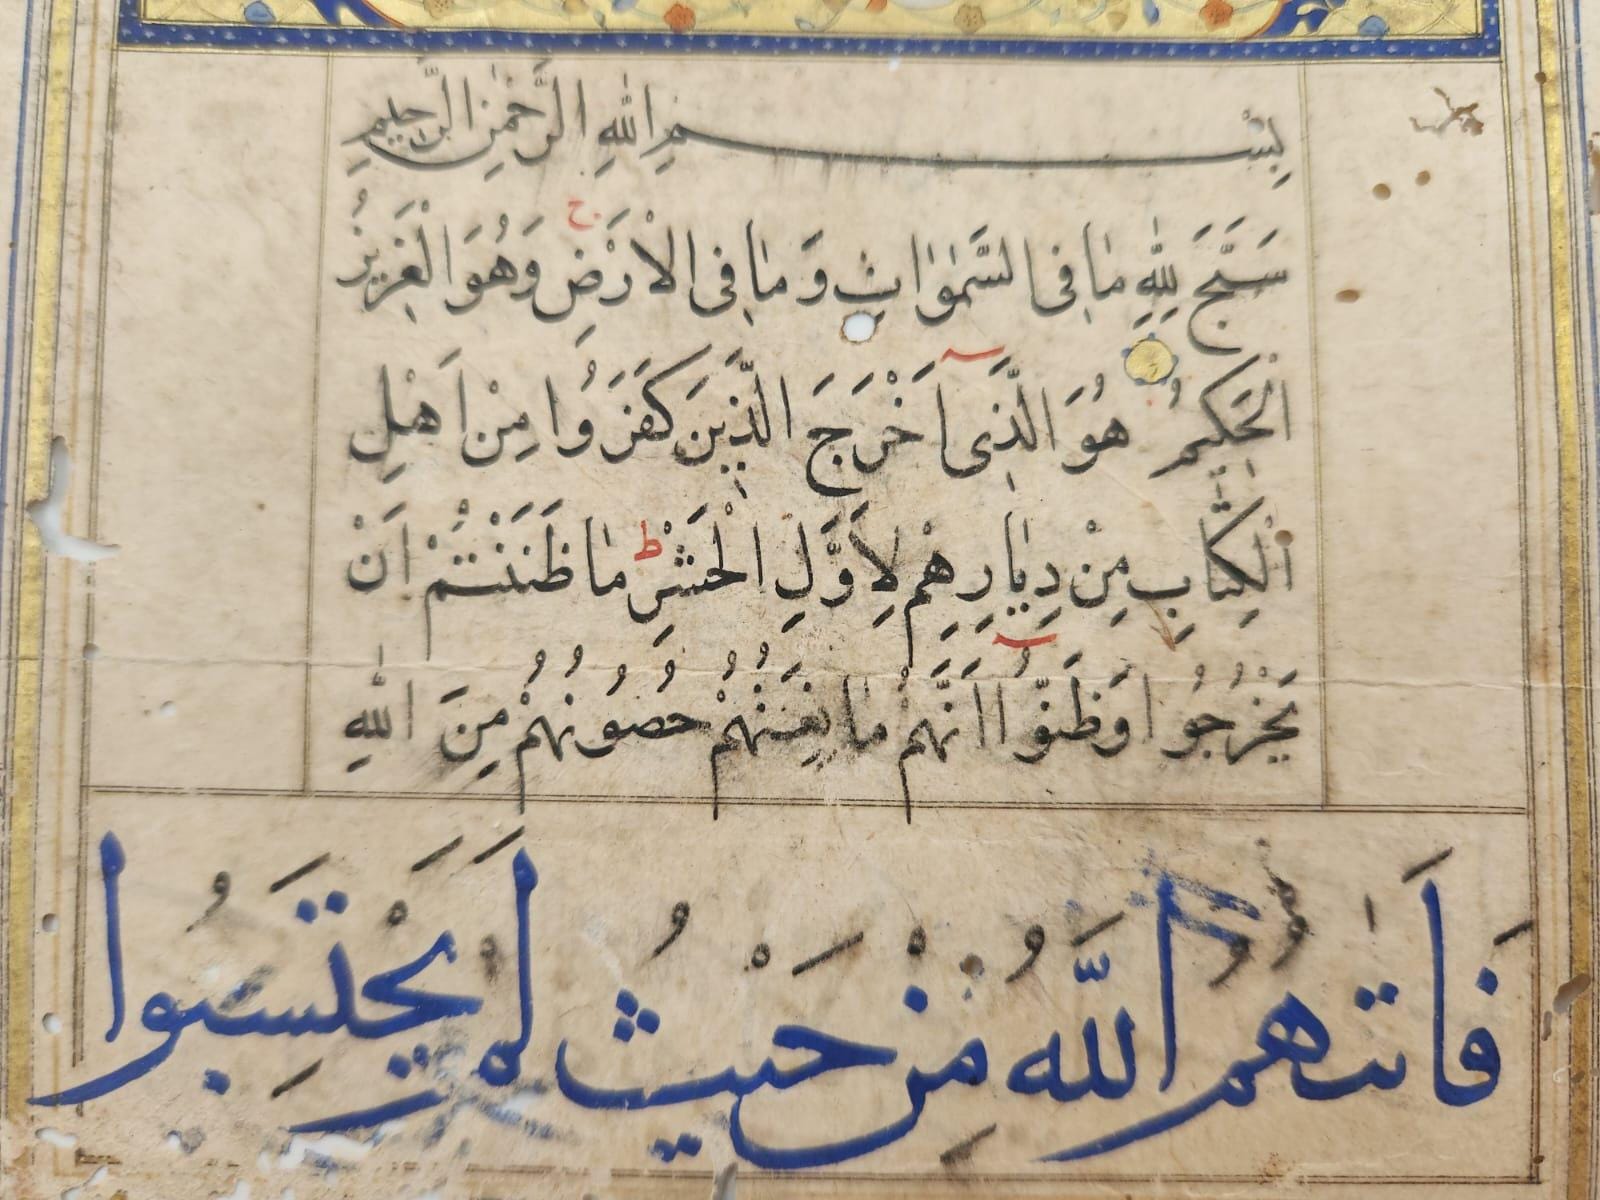 بِسْمِ اللهِ الرَّحْمٰنِ الرَّحِيمِ
سَبَّحَ لِلّٰهِ مَا فِى السَّمٰوَاتِ وَمَا فِى الْاَرْضِ ج وَهُوَ الْعَزِيزُ
الْحَكِيمُ هُوَ الَّذِىٓ اَخْرَجَ الَّذِينَ كَفَرُوا مِنْ اَهْلِ
الْكِتَابِ مِنْ دِيَارِهِمْ لِاَوَّلِ الْحَشْرِ ط مَا ظَنَنْتُمْ اَنْ
يَخْرُجُوا وَظَنُّوٓا اَنَّهُمْ مَانِعَتُهُمْ حُصُونُهُمْ مِنَ اللّٰهِ
فَاَتٰىهُمُ اللَّهُ مِنْ حَيْثُ لَمْ يَحْتَسِبُوا